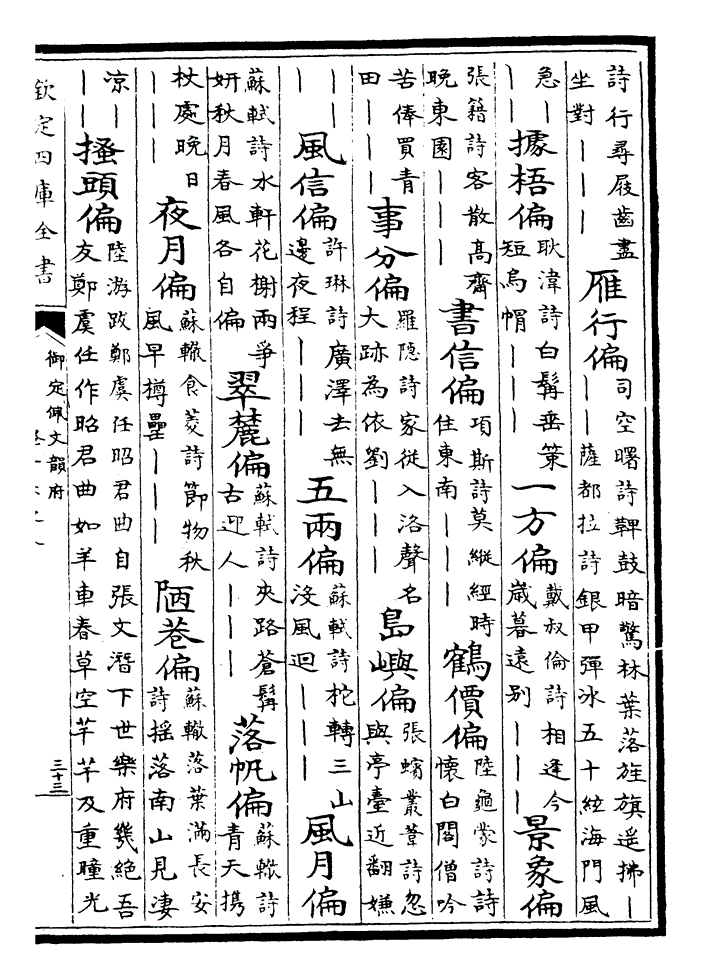 詩行尋屐齒盡
坐對｜｜｜
雁行偏
司空曙詩鞞鼓暗驚林葉落旌旗遥拂｜
｜｜薩都拉詩銀甲彈冰五十絃海門風
急｜
｜｜
據梧偏
耿湋詩白髯垂策
短烏帽｜｜｜
一方偏
戴叔倫詩相逢今
歲暮遠别｜｜｜
景象偏
張籍詩客散高齋
晚東園｜｜｜
書信偏
項斯詩莫縱經時
住東南｜｜｜
鶴價偏
陸龜蒙詩詩
懷白閣僧吟
苦俸買青
田｜｜｜
事分偏
羅隐詩家從入洛聲名
大跡為依劉｜｜｜
島嶼偏
張蠙叢葦詩忽
與亭臺近翻嫌
｜
｜｜
風信偏
許琳詩廣澤去無
邊夜程｜｜｜
五兩偏
蘇軾詩柁轉三山
沒風迴｜｜｜
風月偏
蘇軾詩水軒花榭兩爭
妍秋月春風各自偏
翠麓偏
蘇軾詩夾路蒼髯
古迎人｜｜｜
落帆偏
蘇轍詩
青天携
杖處晚日
｜｜｜
夜月偏
蘇轍食菱詩節物秋
風早樽罍｜｜｜
陋巷偏
蘇轍落葉滿長安
詩摇落南山見凄
凉｜
｜｜
搔頭偏
陸游跋鄭虞任昭君曲自張文潛下世樂府幾絕吾
友鄭虞任作昭君曲如羊車春草空芊芊及重瞳光
欽定四庫全書
御定佩文韻府
三十三